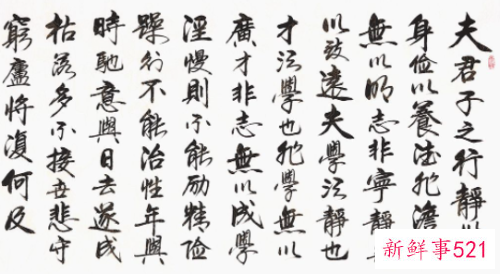 夫君子之行靜以
身儉以養德非澹
無以明志非寧靜
以致遠夫學須靜也
才須學也非學無以
廣才非志無以成學
淫慢則不能勵精險
躁則不能治性年與
時馳意與日去遂成
枯落多不接世悲守
窮廬將復何及
新鲜事521